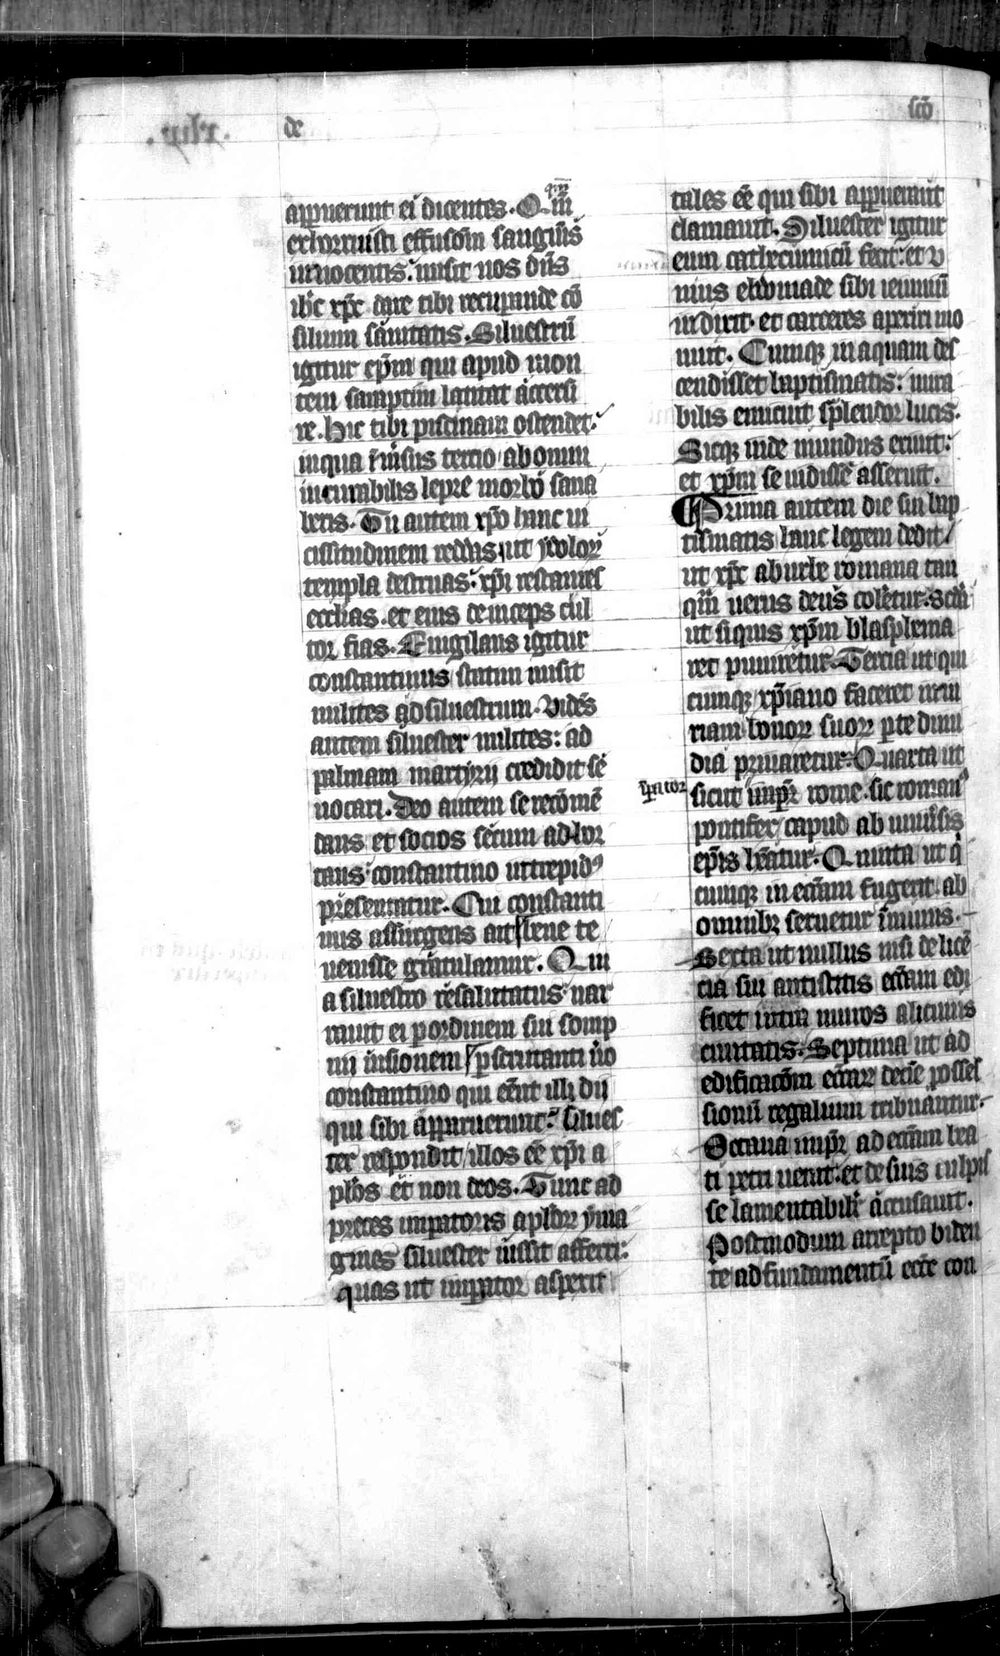 de
sc̄o
appuerunt ei dicentes. Qm̄
exhorruisti effusiōm sanguīs
innocentis: misit nos dn̄s
ih̄c xp̄c dare tibi recuperande cō
silium sanitatis. Siluestrū
igitur ep̄m qui apud mon
tem saraptim latitat accersi
re. Hic tibi piscinam ostendet:
in qua īmsus tercio ab omni
incurabilis lepre morbo sana
beris. Tu autem xp̄o hanc ui
cissitudinem reddas ut ydolor̄
templa destruas: xp̄i restaures
ecclias. et eius deinceps cul
tor fias. Euigilans igitur
constantinus statim misit
milites ad siluestrum. Vidēs
autem siluester milites: ad
palmam martyrij credidit sē
uocari. Deo autem se recōmē
dans et socios secum adhor
tans: constantino intrepidꝰ
presentatur. Cui constanti
nus assurgens ait bene te
uenisse gratulamur. Qui
a siluestro resalutatus nar
rauit ei p ordinem sui somp
nii uisionem pscrutanti u̅o
constantino qui eēnt illi dii
qui sibi apparuerunt: silues
ter respondit illos eē xp̄i a
plōs et non deos. Tunc ad
preces imperatoris aplōr̄ yma
gines siluester iussit afferri:
quas ut impator aspexit
tales eē qui sibi appuerunt
clamauit. Siluester igitur
eum cathecuminū fecit: et v
nius ebdomade sibi ieiuniū
indixit. et carceres aperiri mo
nuit. Cumqꝫ in aquam des
cendisset baptismatis: mira
bilis emicuit splendor lucis.
Sicqꝫ inde mundus exiuit:
et xp̄m se uidisse asseruit.
Prima autem die sui bap
tismatis hanc legem dedit
ut xp̄c ab urbe romana tan
qm̄ uerus deus coletur. Scd̄a
ut siquis xp̄m blasphema
ret puniretur. Tercia ut qui
cumqꝫ xp̄iano faceret iniu
riam bonor̄ suor̄ pte dimi
dia priuaretur. Quarta ut
sicut imp̄r rome. sic romanꝰ
pontifex capud ab uniūsis
ep̄is heatur. Quinta ut q̄
cumqꝫ in eccam fugerit ab
omnibꝫ seruetur īmunis.
Sexta ut nullus nisi de licē
cia sui antistitis eccam edi
ficet intra muros alicuius
ciuitatis. Septima ut ad
edificacōm eccar̄ decie posses
sionū regalium tribuantur.
Octaua imp̄r ad eccam bea
ti petri uenit: et de suis culpis
se lamentabilr̄ accusauit.
Postmodum accepto biden
te ad fundamentū eccē con